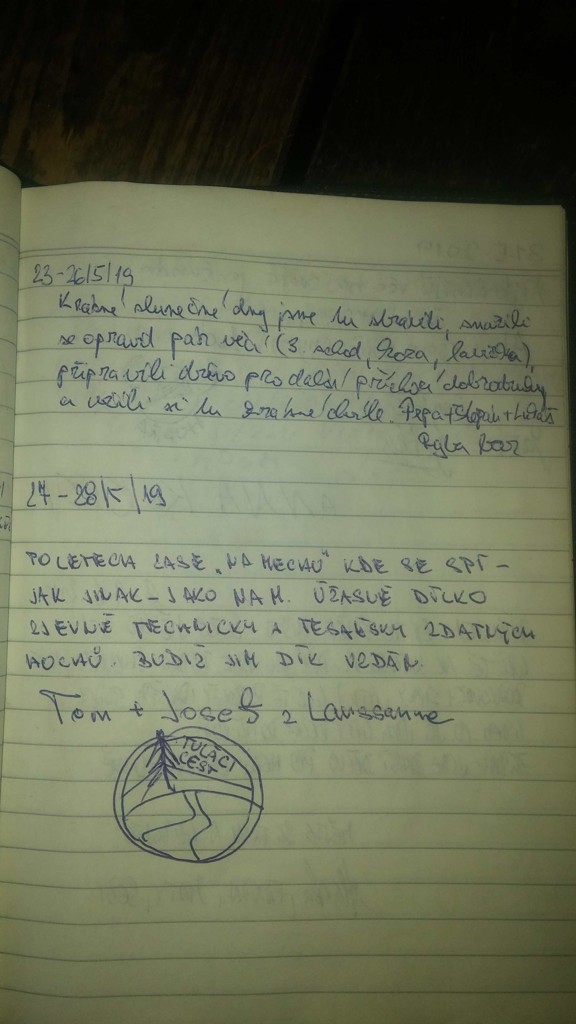 23-26/5/19
Krásné slunečné dny jsme tu strávili, snažili
se opravit pár věcí (3. schod, lavička),
připravili dřevo pro další příchozí dobrodruhy
a užili si tu krásné chvíle. Pepa + Štěpán + Lukáš
Ryba
27-28/5/19
PO LETECH ZASE „NA MECHU" KDE SE SPÍ -
JAK JINAK - JAKO NA M. ÚŽASNÉ DÍLKO
ZJEVNĚ TECHNICKY A TESAŘSKY ZDATNÝCH
HOCHŮ. BUDIŽ JIM DÍK VZDÁN.
Tom + Josef z Laussanne
TULÁCI
CEST